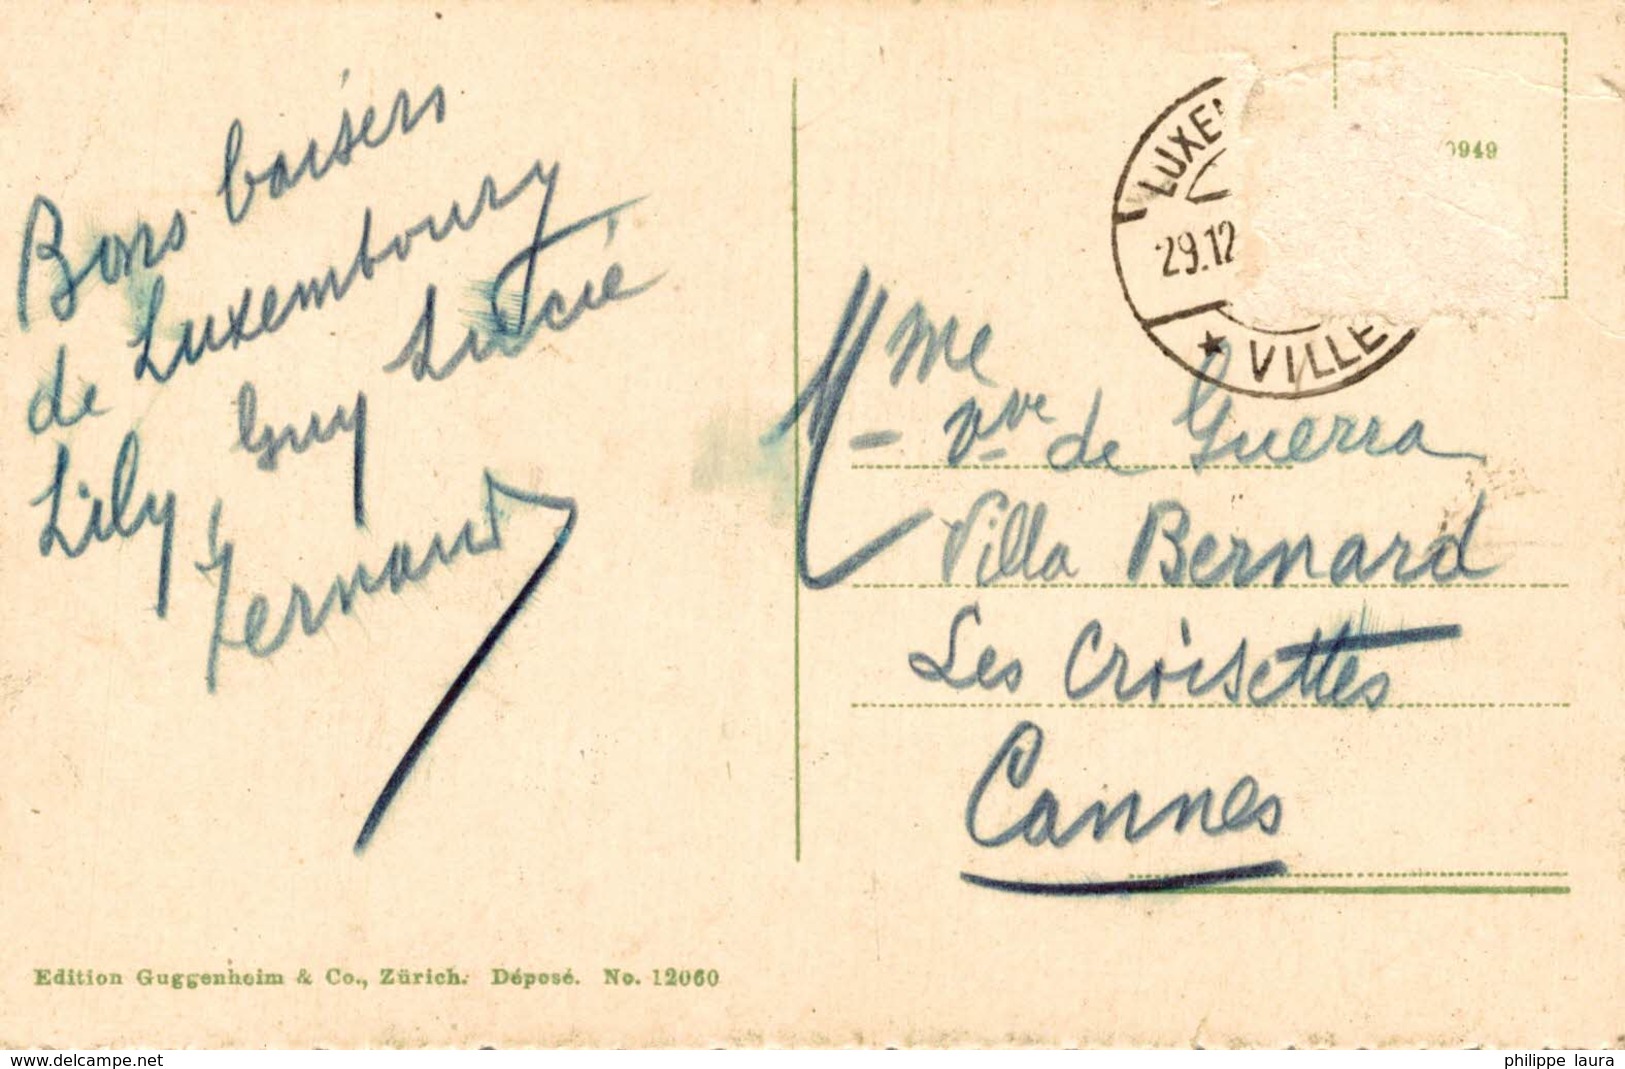 Bons baisers
de Luxembourg
Lily, Guy Lucie
Fernand
LUXEM
29.12
VILLE
0949
Mme
Vve de Guerra
Villa Bernard
Les Croisettes
Cannes
Edition Guggenheim & Co., Zürich. Déposé. No. 12060
www.delcampe.net
philippe laura